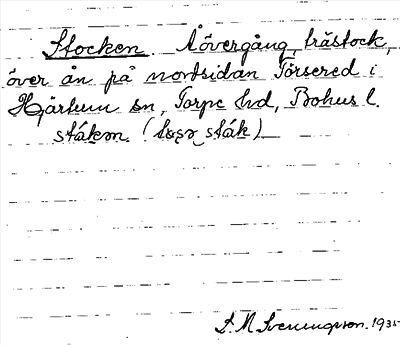 Stocken. Åövergång, trästock,
över ån på nordsidan Törsered i
Hjärtum sn, Torpe hd, Bohus l.
ståkən. (
S. M. Svenungsson. 1935